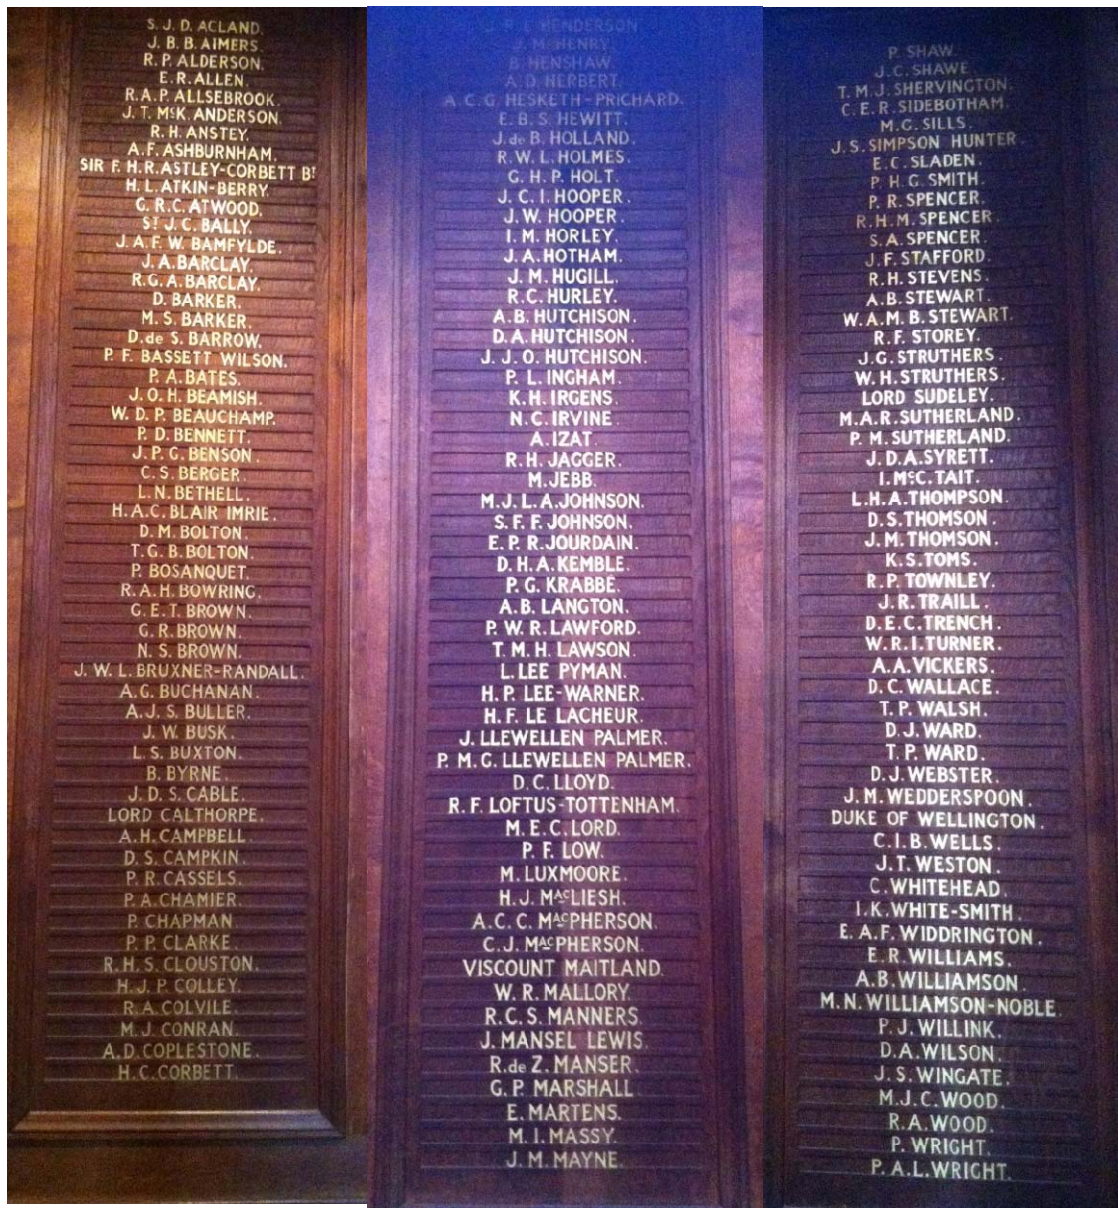 S. J. D. ACLAND.
J. B. B. AIMERS.
R. P. ALDERSON.
E. R. ALLEN.
R. A. P. ALLSEBROOK.
J. T. McK. ANDERSON.
R. H. ANSTEY.
A. F. ASHBURNHAM.
SIR F. H. R. ASTLEY-CORBETT Bt
H. L. ATKIN-BERRY.
G. R. C. ATWOOD.
St J. C. BALLY.
J. A. F. W. BAMFYLDE.
J. A. BARCLAY.
R. G. A. BARCLAY.
D. BARKER.
M. S. BARKER.
D. de S. BARROW.
P. F. BASSETT WILSON.
P. A. BATES.
J. O. H. BEAMISH.
W. D. P. BEAUCHAMP.
P. D. BENNETT.
J. P. G. BENSON.
C. S. BERGER.
L. N. BETHELL.
H. A. C. BLAIR IMRIE.
D. M. BOLTON.
T. G. B. BOLTON.
P. BOSANQUET.
R. A. H. BOWRING.
G. E. T. BROWN.
G. R. BROWN.
N. S. BROWN.
J. W. L. BRUXNER-RANDALL.
A. G. BUCHANAN.
A. J. S. BULLER.
J. W. BUSK.
L. S. BUXTON.
B. BYRNE.
J. D. S. CABLE.
LORD CALTHORPE.
A. H. CAMPBELL
D. S. CAMPKIN.
P. R. CASSELS.
P. A. CHAMIER.
P. CHAPMAN
P. P. CLARKE.
R. H. S. CLOUSTON.
H. J. P. COLLEY.
R. A. COLVILE.
M. J. CONRAN.
A. D. COPLESTONE.
H. C. CORBETT.
HENDERSON
J. McHENRY.
B. HENSHAW.
A. D. HERBERT.
A. C. G. HESKETH-PRICHARD.
E. B. S. HEWITT.
J. de B. HOLLAND.
R. W. L. HOLMES.
G. H. P. HOLT.
J. C. I. HOOPER.
J. W. HOOPER.
I. M. HORLEY.
J. A. HOTHAM.
J. M. HUGILL.
R. C. HURLEY.
A. B. HUTCHISON.
D. A. HUTCHISON.
J. J. O. HUTCHISON.
P. L. INGHAM.
K. H. IRGENS.
N. C. IRVINE.
A. IZAT.
R. H. JAGGER.
M. JEBB.
M. J. L. A. JOHNSON.
S. F. F. JOHNSON.
E. P. R. JOURDAIN.
D. H. A. KEMBLE.
P. G. KRABBÉ.
A. B. LANGTON.
P. W. R. LAWFORD.
T. M. H. LAWSON.
L. LEE PYMAN.
H. P. LEE-WARNER.
H. F. LE LACHEUR.
J. LLEWELLEN PALMER.
P. M. G. LLEWELLEN PALMER.
D. C. LLOYD.
R. F. LOFTUS-TOTTENHAM.
M. E. C. LORD.
P. F. LOW.
M. LUXMOORE.
H. J. MacLIESH.
A. C. C. MacPHERSON.
C. J. MacPHERSON.
VISCOUNT MAITLAND.
W. R. MALLORY.
R. C. S. MANNERS.
J. MANSEL LEWIS.
R. de Z. MANSER.
G. P. MARSHALL
E. MARTENS.
M. I. MASSY.
J. M. MAYNE.
P. SHAW.
J. C. SHAWE
T. M. J. SHERVINGTON.
C. E. R. SIDEBOTHAM.
M. G. SILLS.
J. S. SIMPSON HUNTER.
E. C. SLADEN.
P. H. G. SMITH.
P. R. SPENCER.
R. H. M. SPENCER.
S. A. SPENCER.
J. F. STAFFORD.
R. H. STEVENS.
A. B. STEWART.
W. A. M. B. STEWART.
R. F. STOREY.
J. G. STRUTHERS.
W. H. STRUTHERS.
LORD SUDELEY.
M. A. R. SUTHERLAND.
P. M. SUTHERLAND.
J. D. A. SYRETT.
I. McC. TAIT.
L. H. A. THOMPSON.
D. S. THOMSON.
J. M. THOMSON.
K. S. TOMS.
R. P. TOWNLEY.
J. R. TRAILL.
D. E. C. TRENCH.
W. R. I. TURNER.
A. A. VICKERS.
D. C. WALLACE.
T. P. WALSH.
D. J. WARD.
T. P. WARD.
D. J. WEBSTER.
J. M. WEDDERSPOON.
DUKE OF WELLINGTON.
C. I. B. WELLS.
J. T. WESTON.
C. WHITEHEAD.
I. K. WHITE-SMITH.
E. A. F. WIDDRINGTON.
E. R. WILLIAMS.
A. B. WILLIAMSON.
M. N. WILLIAMSON-NOBLE.
P. J. WILLINK.
D. A. WILSON.
J. S. WINGATE.
M. J. C. WOOD.
R. A. WOOD.
P. WRIGHT.
P. A. L. WRIGHT.